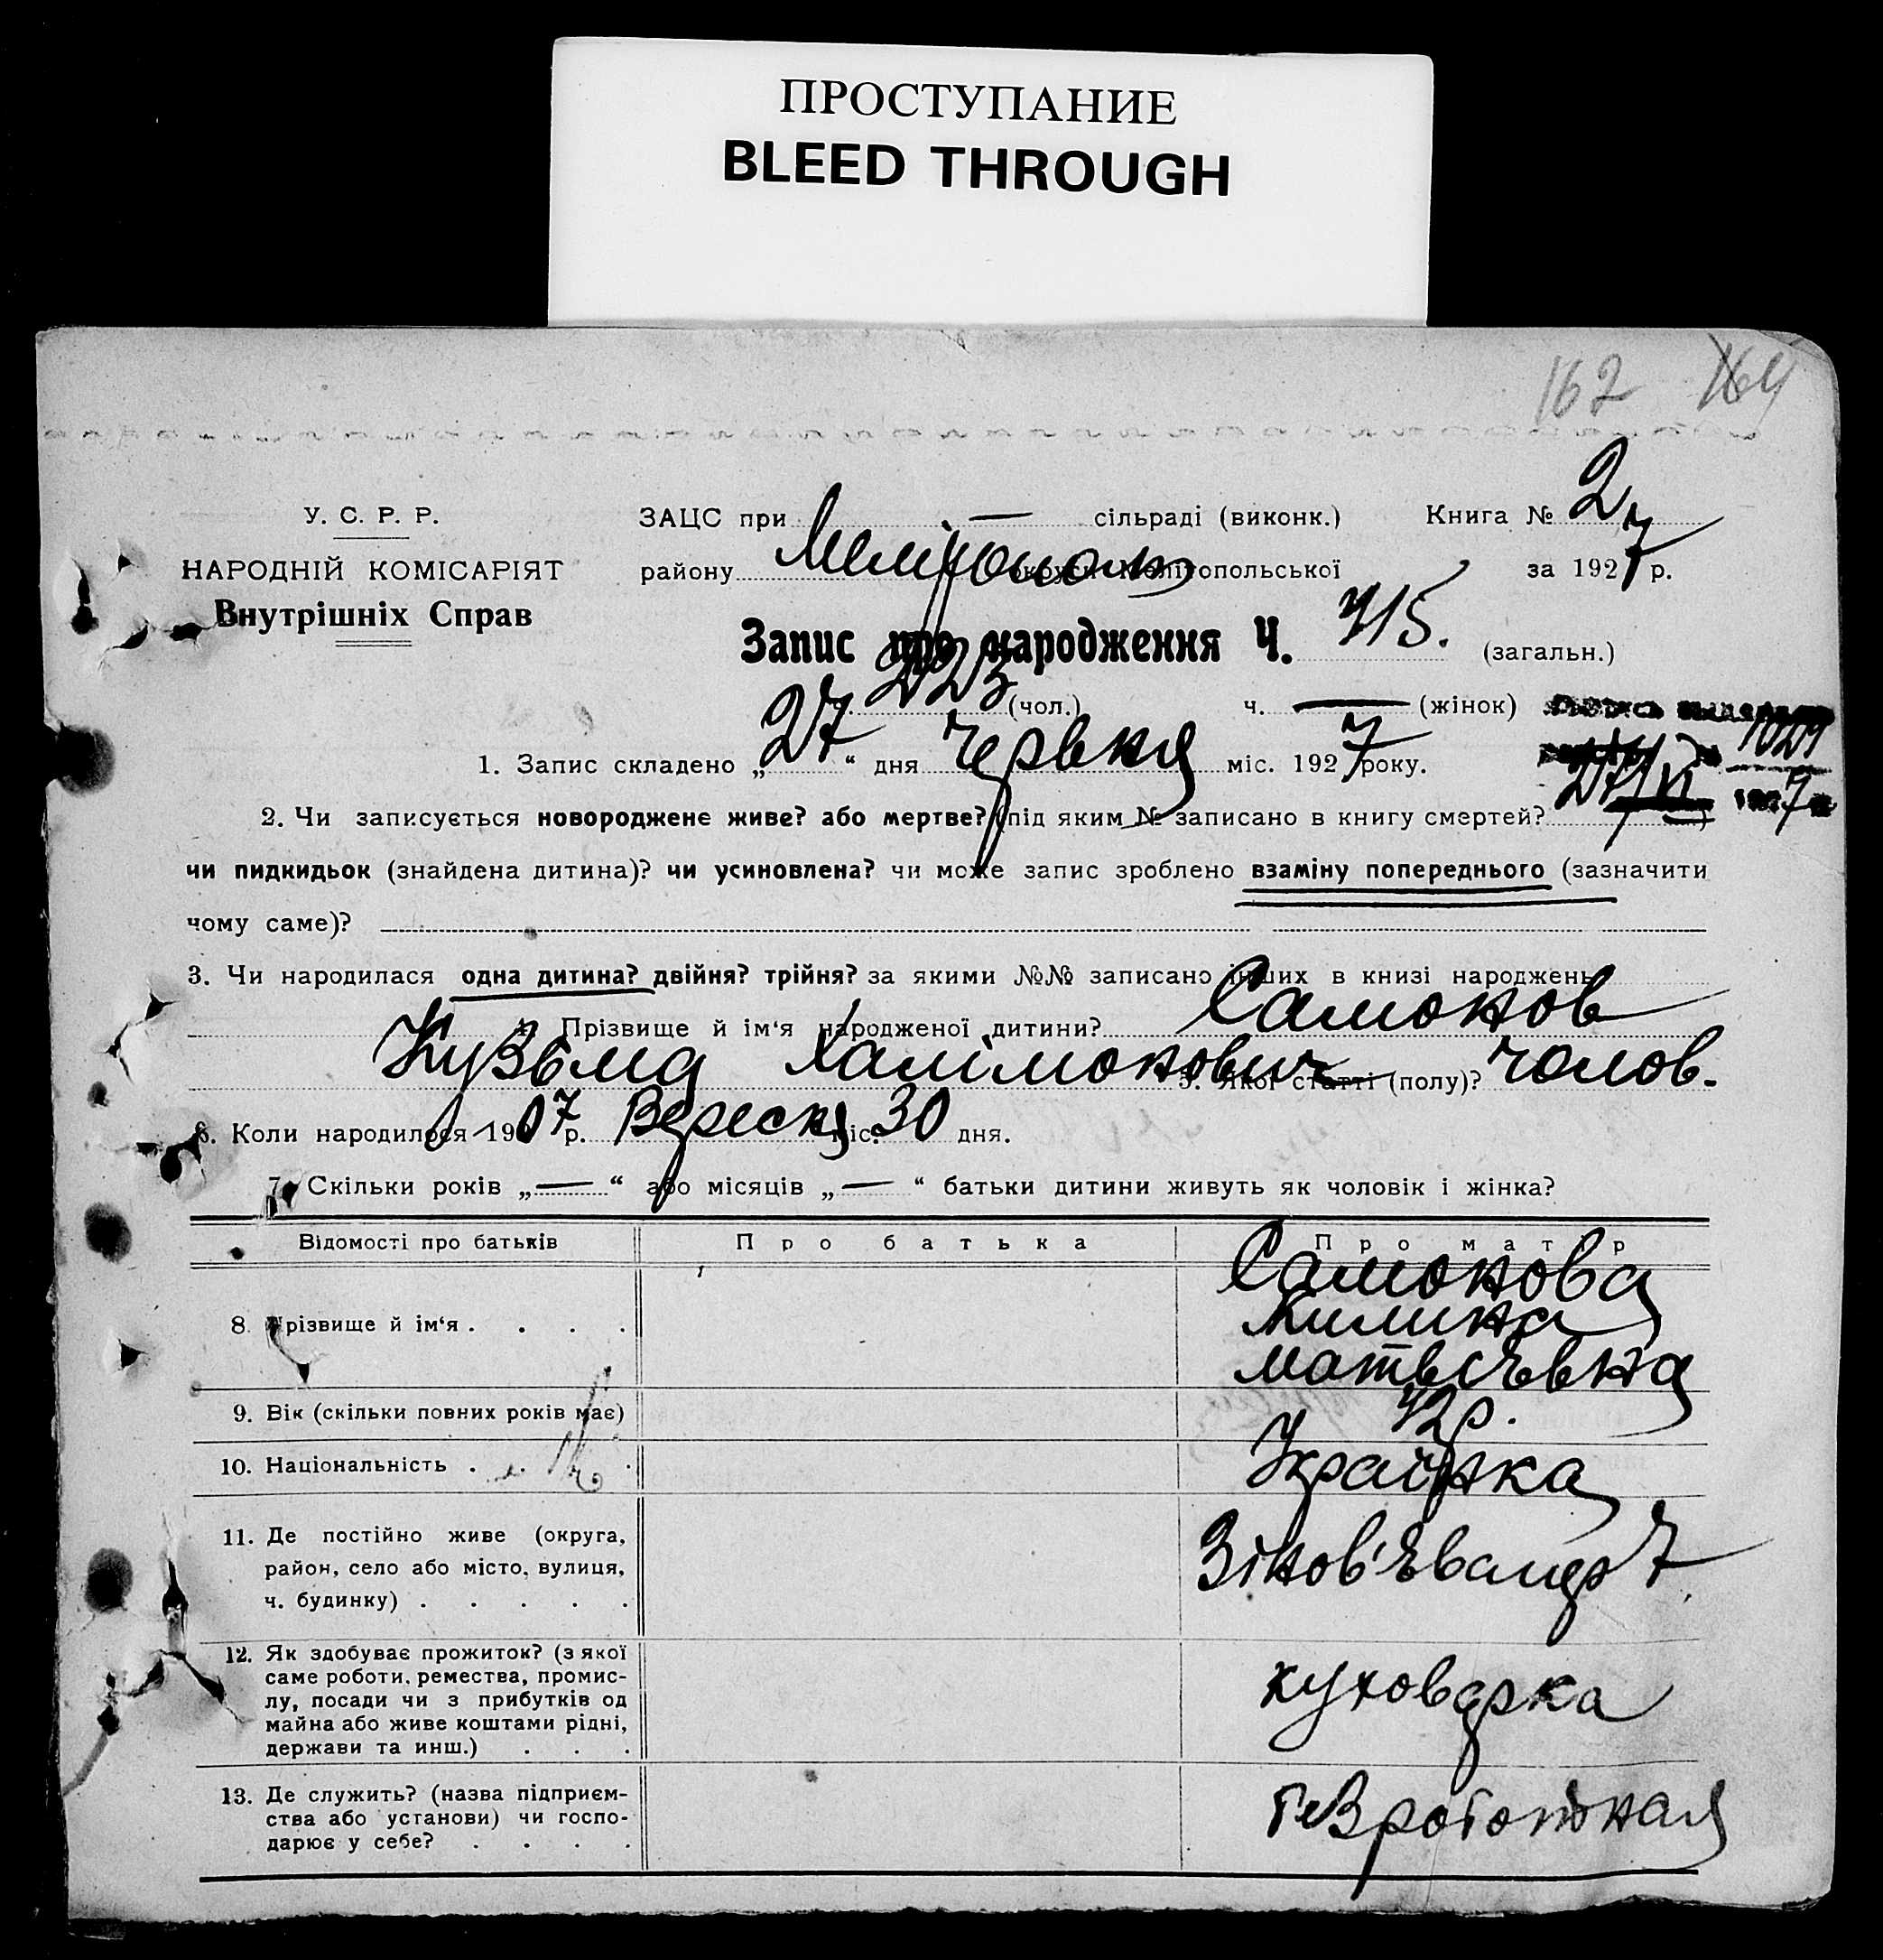 ПРОСТУПАНИЕ
BLEED THROUGH
162 164
У. С. Р. Р.
НАРОДНІЙ КОМІСАРІЯТ
Внутрішніх Справ
ЗАЦС при — сільраді (виконк.) Книга № 2
району Мелітополь округи Мелітопольської за 1927 р.
Запис про народження Ч. 715. (загальн.)
223 (чол.) ч. — (жінок)
1. Запис складено „27“ дня Червня міс. 1927 року.
1029
27/VI 1927
2. Чи записується новороджене живе? або мертве? (під яким № записано в книгу смертей?)
чи пидкидьок (знайдена дитина)? чи усиновлена? чи може запис зроблено взаміну попереднього (зазначити
чому саме)?
3. Чи народилася одна дитина? двійня? трійня? за якими №№ записано інших в книзі народжень
4. Прізвище й ім‘я народженої дитини? Самонов
Кузьма Халімонович 5. Якої статті (полу)? чолов.
6. Коли народилося 1907 р. Вересня міс. 30 дня.
7. Скільки років „—“ або місяців „—“ батьки дитини живуть як чоловік і жінка?
Відомості про батьків Про батька Про матір
8. Прізвище й ім‘я . . . . Самонова
Килина
Матвієвна
9. Вік (скільки повних років має) 42 р.
10. Національність . . . . Українка
11. Де постійно живе (округа,
район, село або місто, вулиця,
ч. будинку) . . . . .
7
12. Як здобуває прожиток? (з якої
саме роботи, ремества, промис-
лу, посади чи з прибутків од
майна або живе коштами рідні,
держави та инш.) . . .
куховарка
13. Де служить? (назва підприєм-
ства або установи) чи госпо-
дарює у себе? . . . .